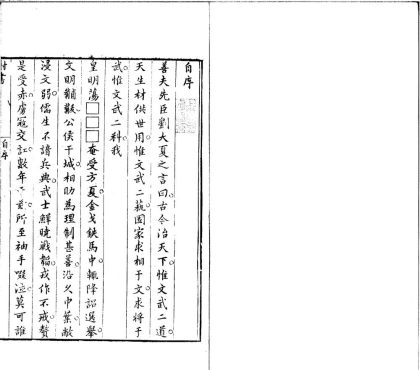 自序
善夫先臣劉大夏之言曰古今治天下惟文武二道
天生材供世用惟文武二藝國家求相于文求將于
武惟文武二科我
皇明蕩□□□奄受方夏金戈鐵馬中輒降詔選舉
文明黼黻公侯干城相助為理制甚善沿久中葉敝
浸文弱儒生不諳兵典武士鮮曉戰韜戎作不戒贅
是受赤虜寇交訌數年 所至袖手啜泣莫可誰
自序